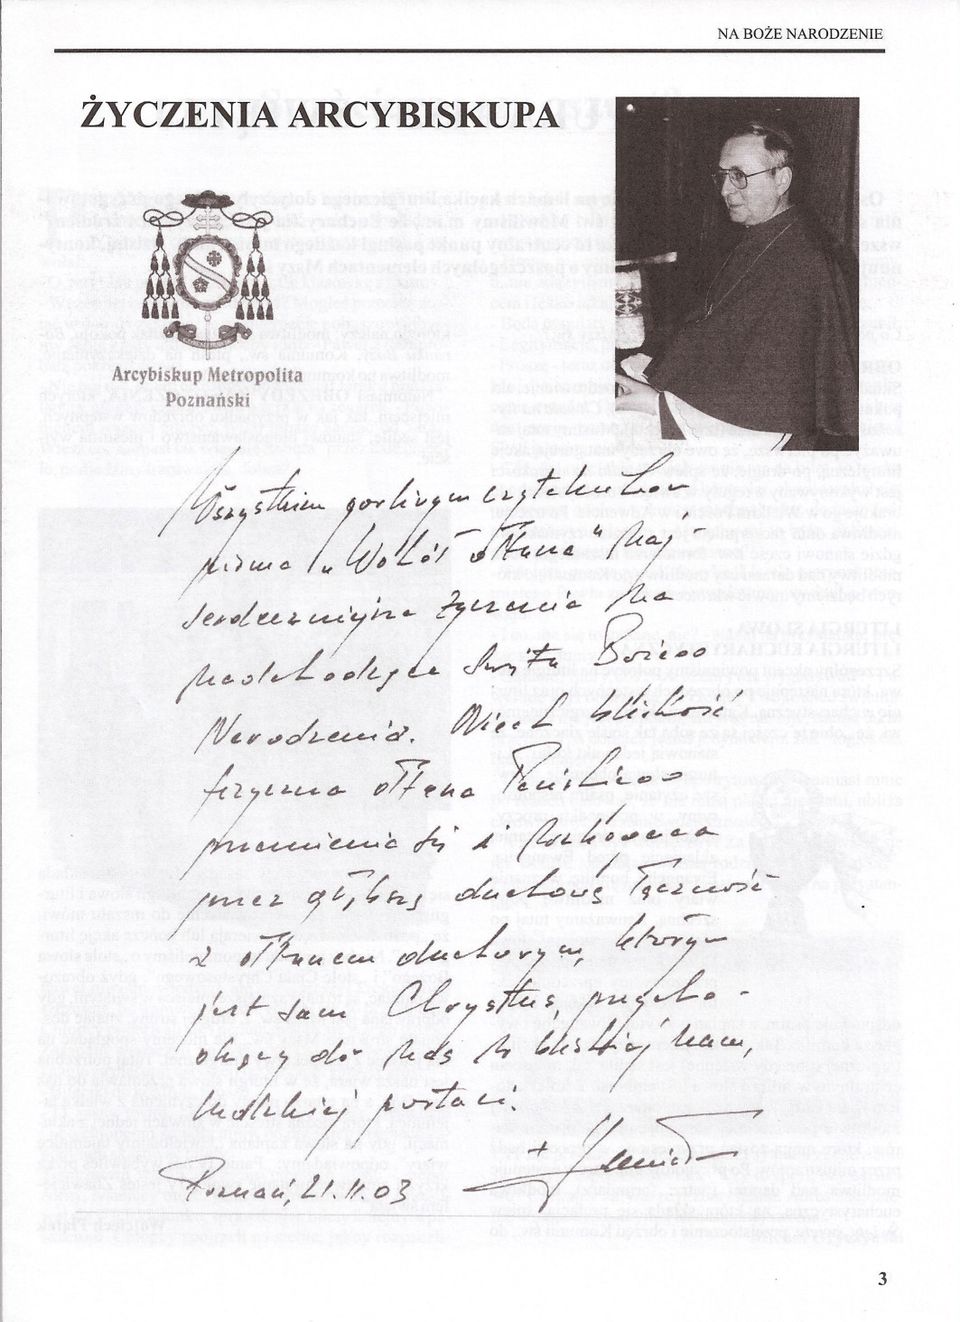 NA BOŻE NARODZENIE
ŻYCZENIA ARCYBISKUPA
Arcybiskup Metropolita
Poznański
Wszystkim gorliwym czytelnikom
pisma „Wokół ołtarza" naj
serdeczniejsze życzenia na
nadchodzące Święta Bożego
Narodzenia. Niech bliskość
fizyczna ołtarza Pańskiego
przemienia się i
przez głębszą duchową łączność
z ołtarzem duchowym, którym
jest sam Chrystus, przycho-
dzący do nas w bliskiej nam,
ludzkiej postaci.
+
Poznań, 21.11.03
3